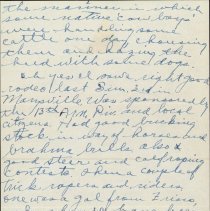 the manner in which
some native cow boys
were handling some
cattle one day chousing
them and hazing the
herd with some dogs.
Oh yes, I saw a right good
rodeo last Sun, 2nd in
Marysville was sponsored by
the 13th A/R Div and local
citizens. Had good bucking
stock in way of horses and
brahma bulls also a
good steer and calf roping
contests. Then a couple of
trick ropers and riders
one was a gal from Fresno,